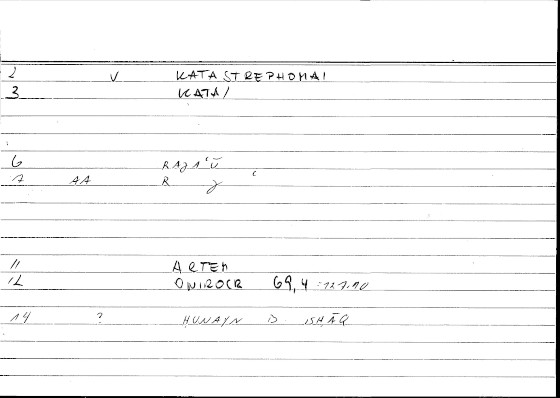 2 V KATASTREPHOMAI
3 KATA/
6 RAJAʿŪ
7 AA R J ʿ
11 ARTEM
12 ONIROCR 69,4 :127.10
14 ? HUNAYN B ISHĀQ